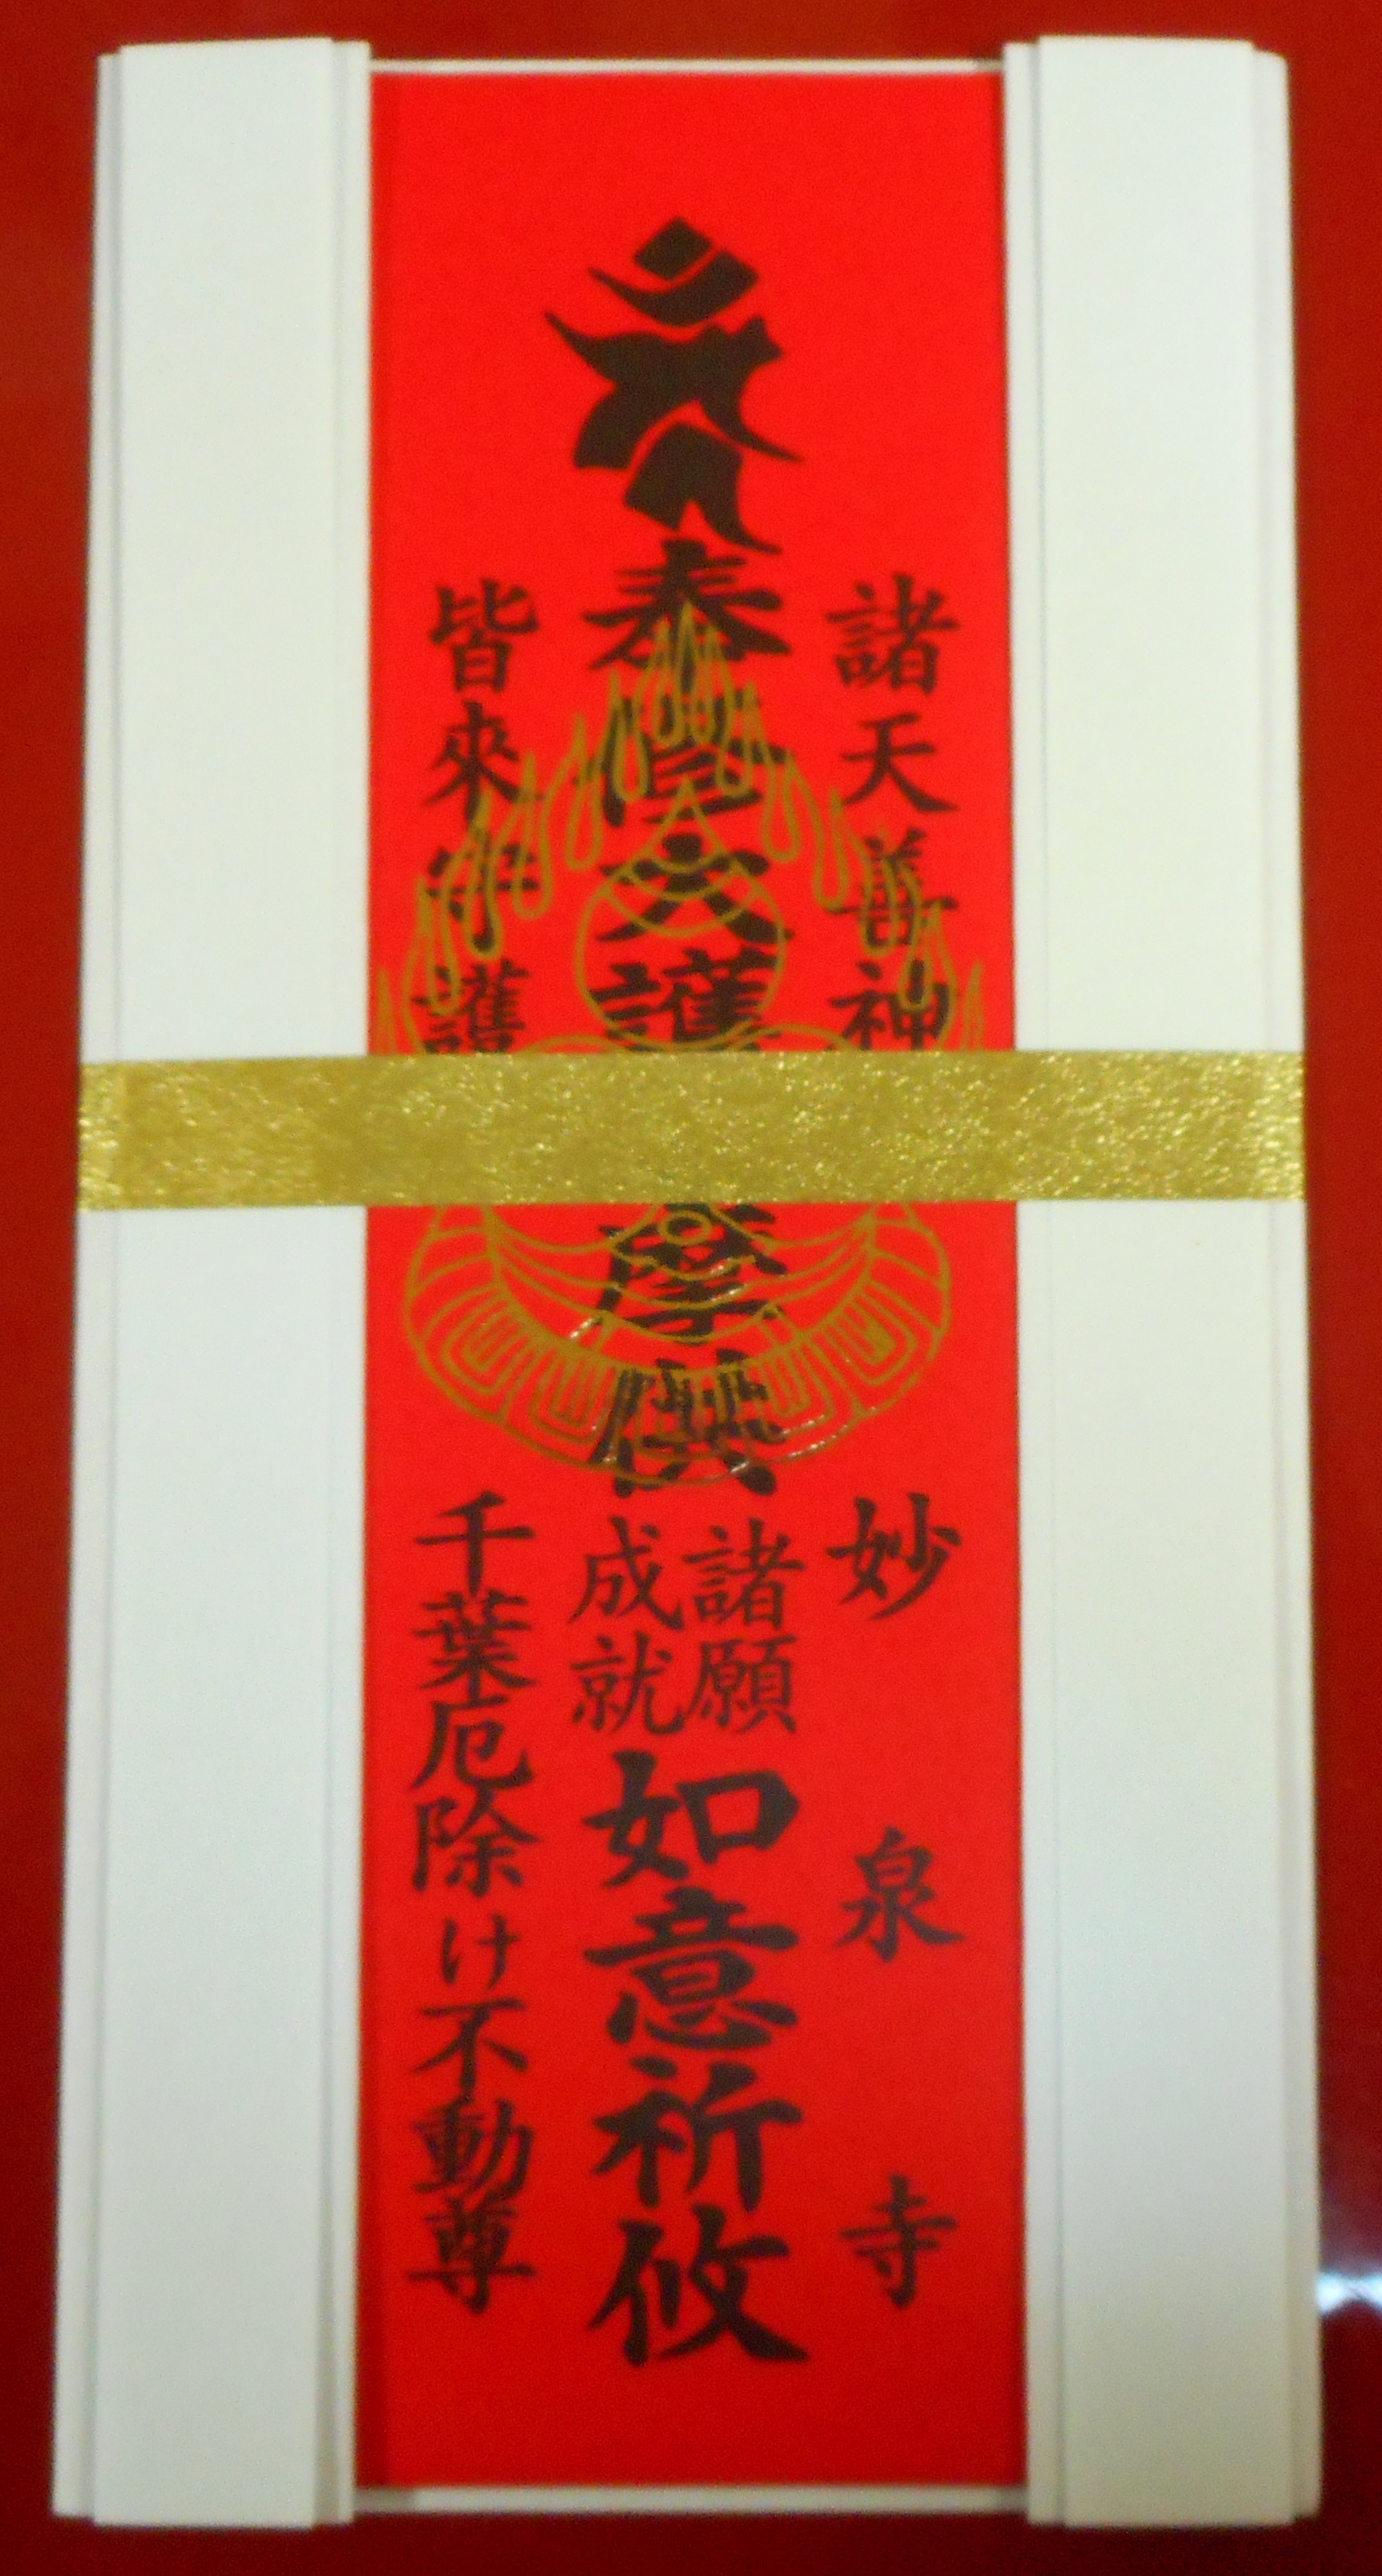 諸天善神
妙泉寺
奉修大護摩供
諸願
成就
如意祈攸
皆來守護
千葉厄除け不動尊